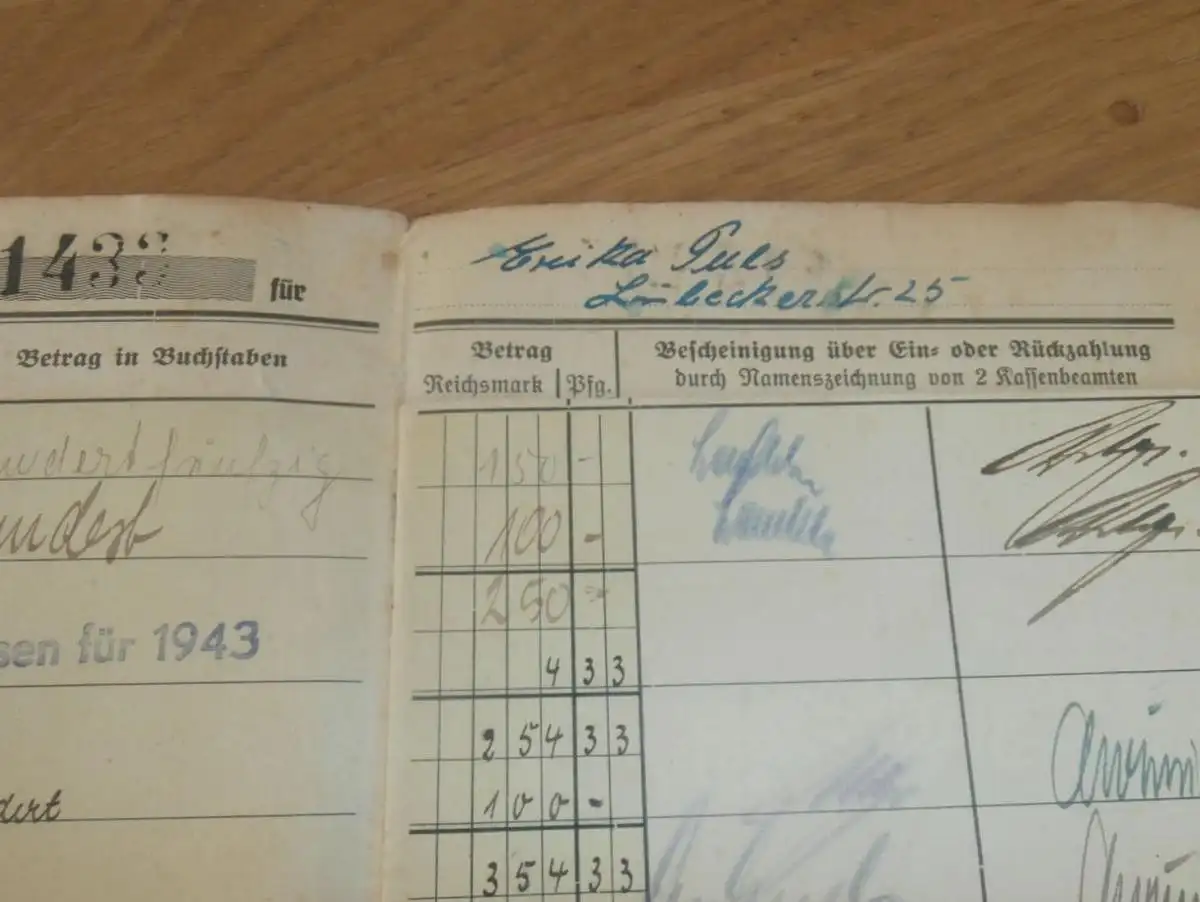 1433 für
Betrag in Buchstaben
undert fünfzig
undert
sen für 1943
dert
Erika Puls
Lübeckerstr. 25
Betrag
Reichsmark Pfg.
Bescheinigung über Ein- oder Rückzahlung
durch Namenszeichnung von 2 Kassenbeamten
150 -
100 -
250 -
4 33
254 33
100 -
354 33